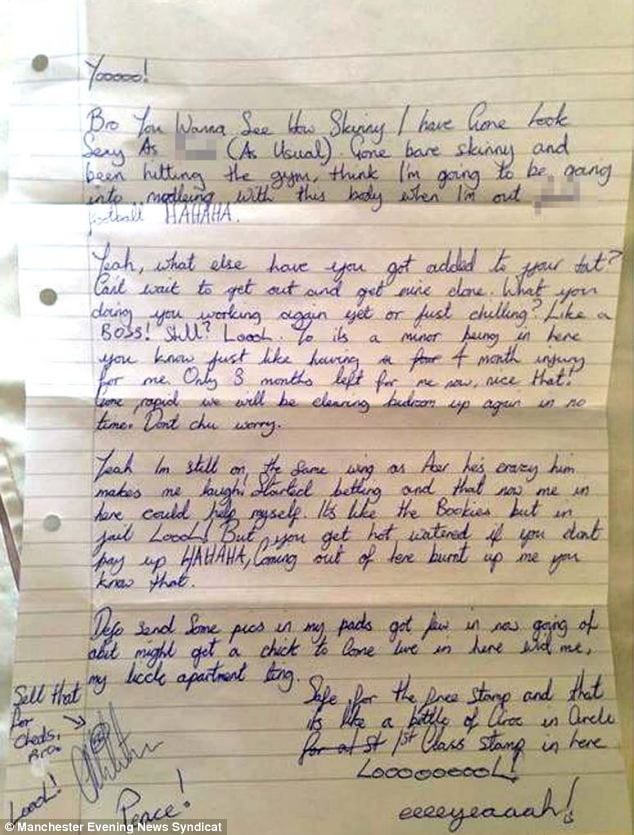 Yooooo!
Bro You Wanna See How Skinny I have Gone Look
Sexy As (As Usual). Gone bare skinny and
been hitting the gym, think I'm going to be going
into modleing with this body when I'm out
football. HAHAHA.
Yeah, what else have you got added to your tat?
Cant wait to get out and get mine done. What you
doing you working again yet or just chilling? Like a
BOSS! Still? Loool. To its a minor being in here
you know just like having a four 4 month injury
for me. Only 3 months left for me now, nice that!
Gone rapid we will be clearing bedroom up again in no
time. Dont chu worry.
Yeah Im still on the same wing as Acer he's crazy him
makes me laugh. Started betting and that now me in
here could help myself. It's like the Bookies but in
jail Loool! But you get hot watered if you dont
pay up HAHAHA, Coming out of here burnt up me you
know that.
Defo send some pics in my pads got few in now going of
abit might get a chick to come live in here wid me,
my liccle apartment ting.
Safe for the free stamp and that
its like a bottle of Ciroc in Circle
for a 1st Class Stamp in here
Loooooooool!
eeeeyeaaah!
Sell that
for
Cheds,
Bro.
Loool!
Peace!
© Manchester Evening News Syndicat